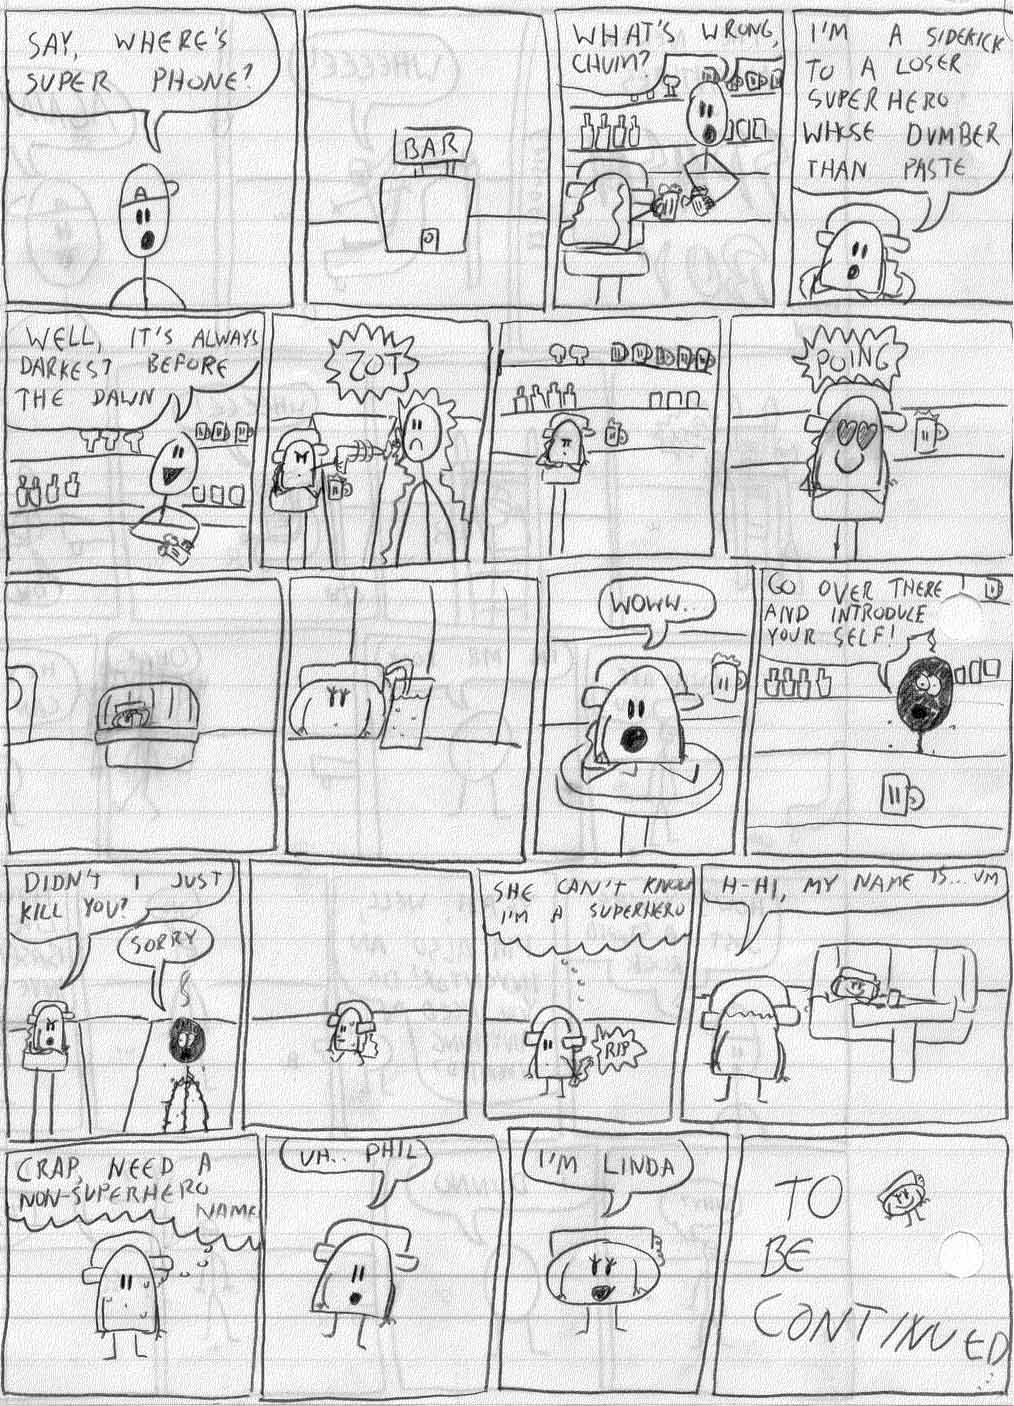 SAY, WHERE'S
SUPER PHONE?
A
BAR
WHAT'S WRONG,
CHUM?
I'M A SIDEKICK
TO A LOSER
SUPERHERO
WHOSE DUMBER
THAN PASTE
WELL, IT'S ALWAYS
DARKEST BEFORE
THE DAWN
ZOT
POING
WOWW..
GO OVER THERE
AND INTRODUCE
YOUR SELF!
DIDN'T I JUST
KILL YOU?
SORRY
SHE CAN'T KNOW
I'M A SUPERHERO
RIP
H-HI, MY NAME IS... UM
CRAP, NEED A
NON-SUPERHERO
NAME
UH.. PHIL
I'M LINDA
TO
BE
CONTINUED